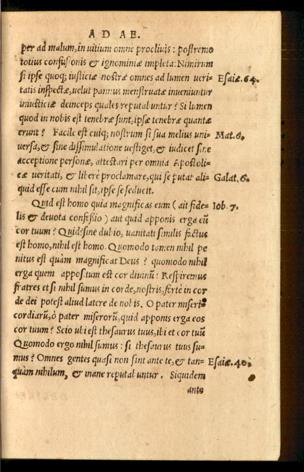 AD AE.
per ad malum, in uitium omne procliuis: postremo
totius confusionis & ignominiæ impleta: Nimirum
si ipsæ quoq; iusticiæ nostræ omnes ad lumen ueri- Esaiæ. 64.
tatis inspectæ, uelut pannus menstruatæ inueniuntur
iniusticiæ deinceps quales reputabuntur? Si lumen
quod in nobis est tenebræ sunt, ipsæ tenebræ quantæ
erunt? Facile est cuiq; nostrum si sua melius uni- Mat. 6.
uersa, & sine dissimulatione uestiget, & iudicet sine
acceptione personæ, attestari per omnia Apostoli-
cæ ueritati, & libere proclamare, qui se putat ali- Galat. 6.
quid esse cum nihil sit, ipse se seducit.
Quid est homo quia magnificas eum (ait fide- Iob. 7.
lis & deuota confessio) aut quid apponis erga eũ
cor tuum? Quid? sine dubio, uanitati similis factus
est homo, nihil est homo. Quomodo tamen nihil pe
nitus est quàm magnificat Deus? quomodo nihil
erga quem appositum est cor diuinũ? Respiremus
fratres et si nihil sumus in corde, nostris, forte in cor
de dei potest aliud latere de nobis. O pater miseri
cordiarũ, ò pater miserorũ, quid apponis erga eos
cor tuum? Scio ubi est thesaurus tuus, ibi et cor tuũ
Quomodo ergo nihil sumus: si thesaurus tuus su-
mus? Omnes gentes quasi non sint ante te, & tan- Esaiæ. 40.
quàm nihilum, & inane reputabuntur. Siquidem
ante